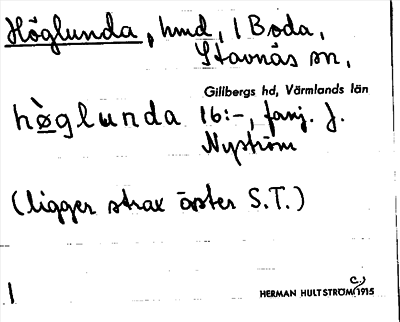 Höglunda, hmd, 1 Boda,
Stavnäs sn,
Gillbergs hd, Värmlands län
hø̀glunda 16:-, fanj. J.
Nyström
(ligger strax öster S.T.)
1
HERMAN HULTSTRÖM (c.) 1915